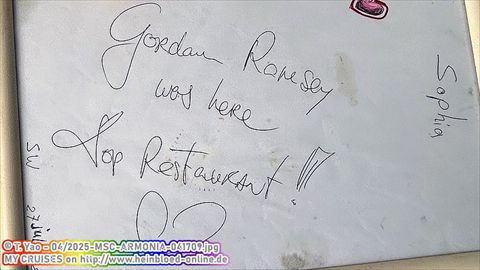 Gordan Ramsey
was here
Top Restaurant!
Sophia
SW 27
©T. Yao - 04/2025-MSC-ARMONIA-041709.jpg
MY CRUISES on http://www.heinbloed-online.de